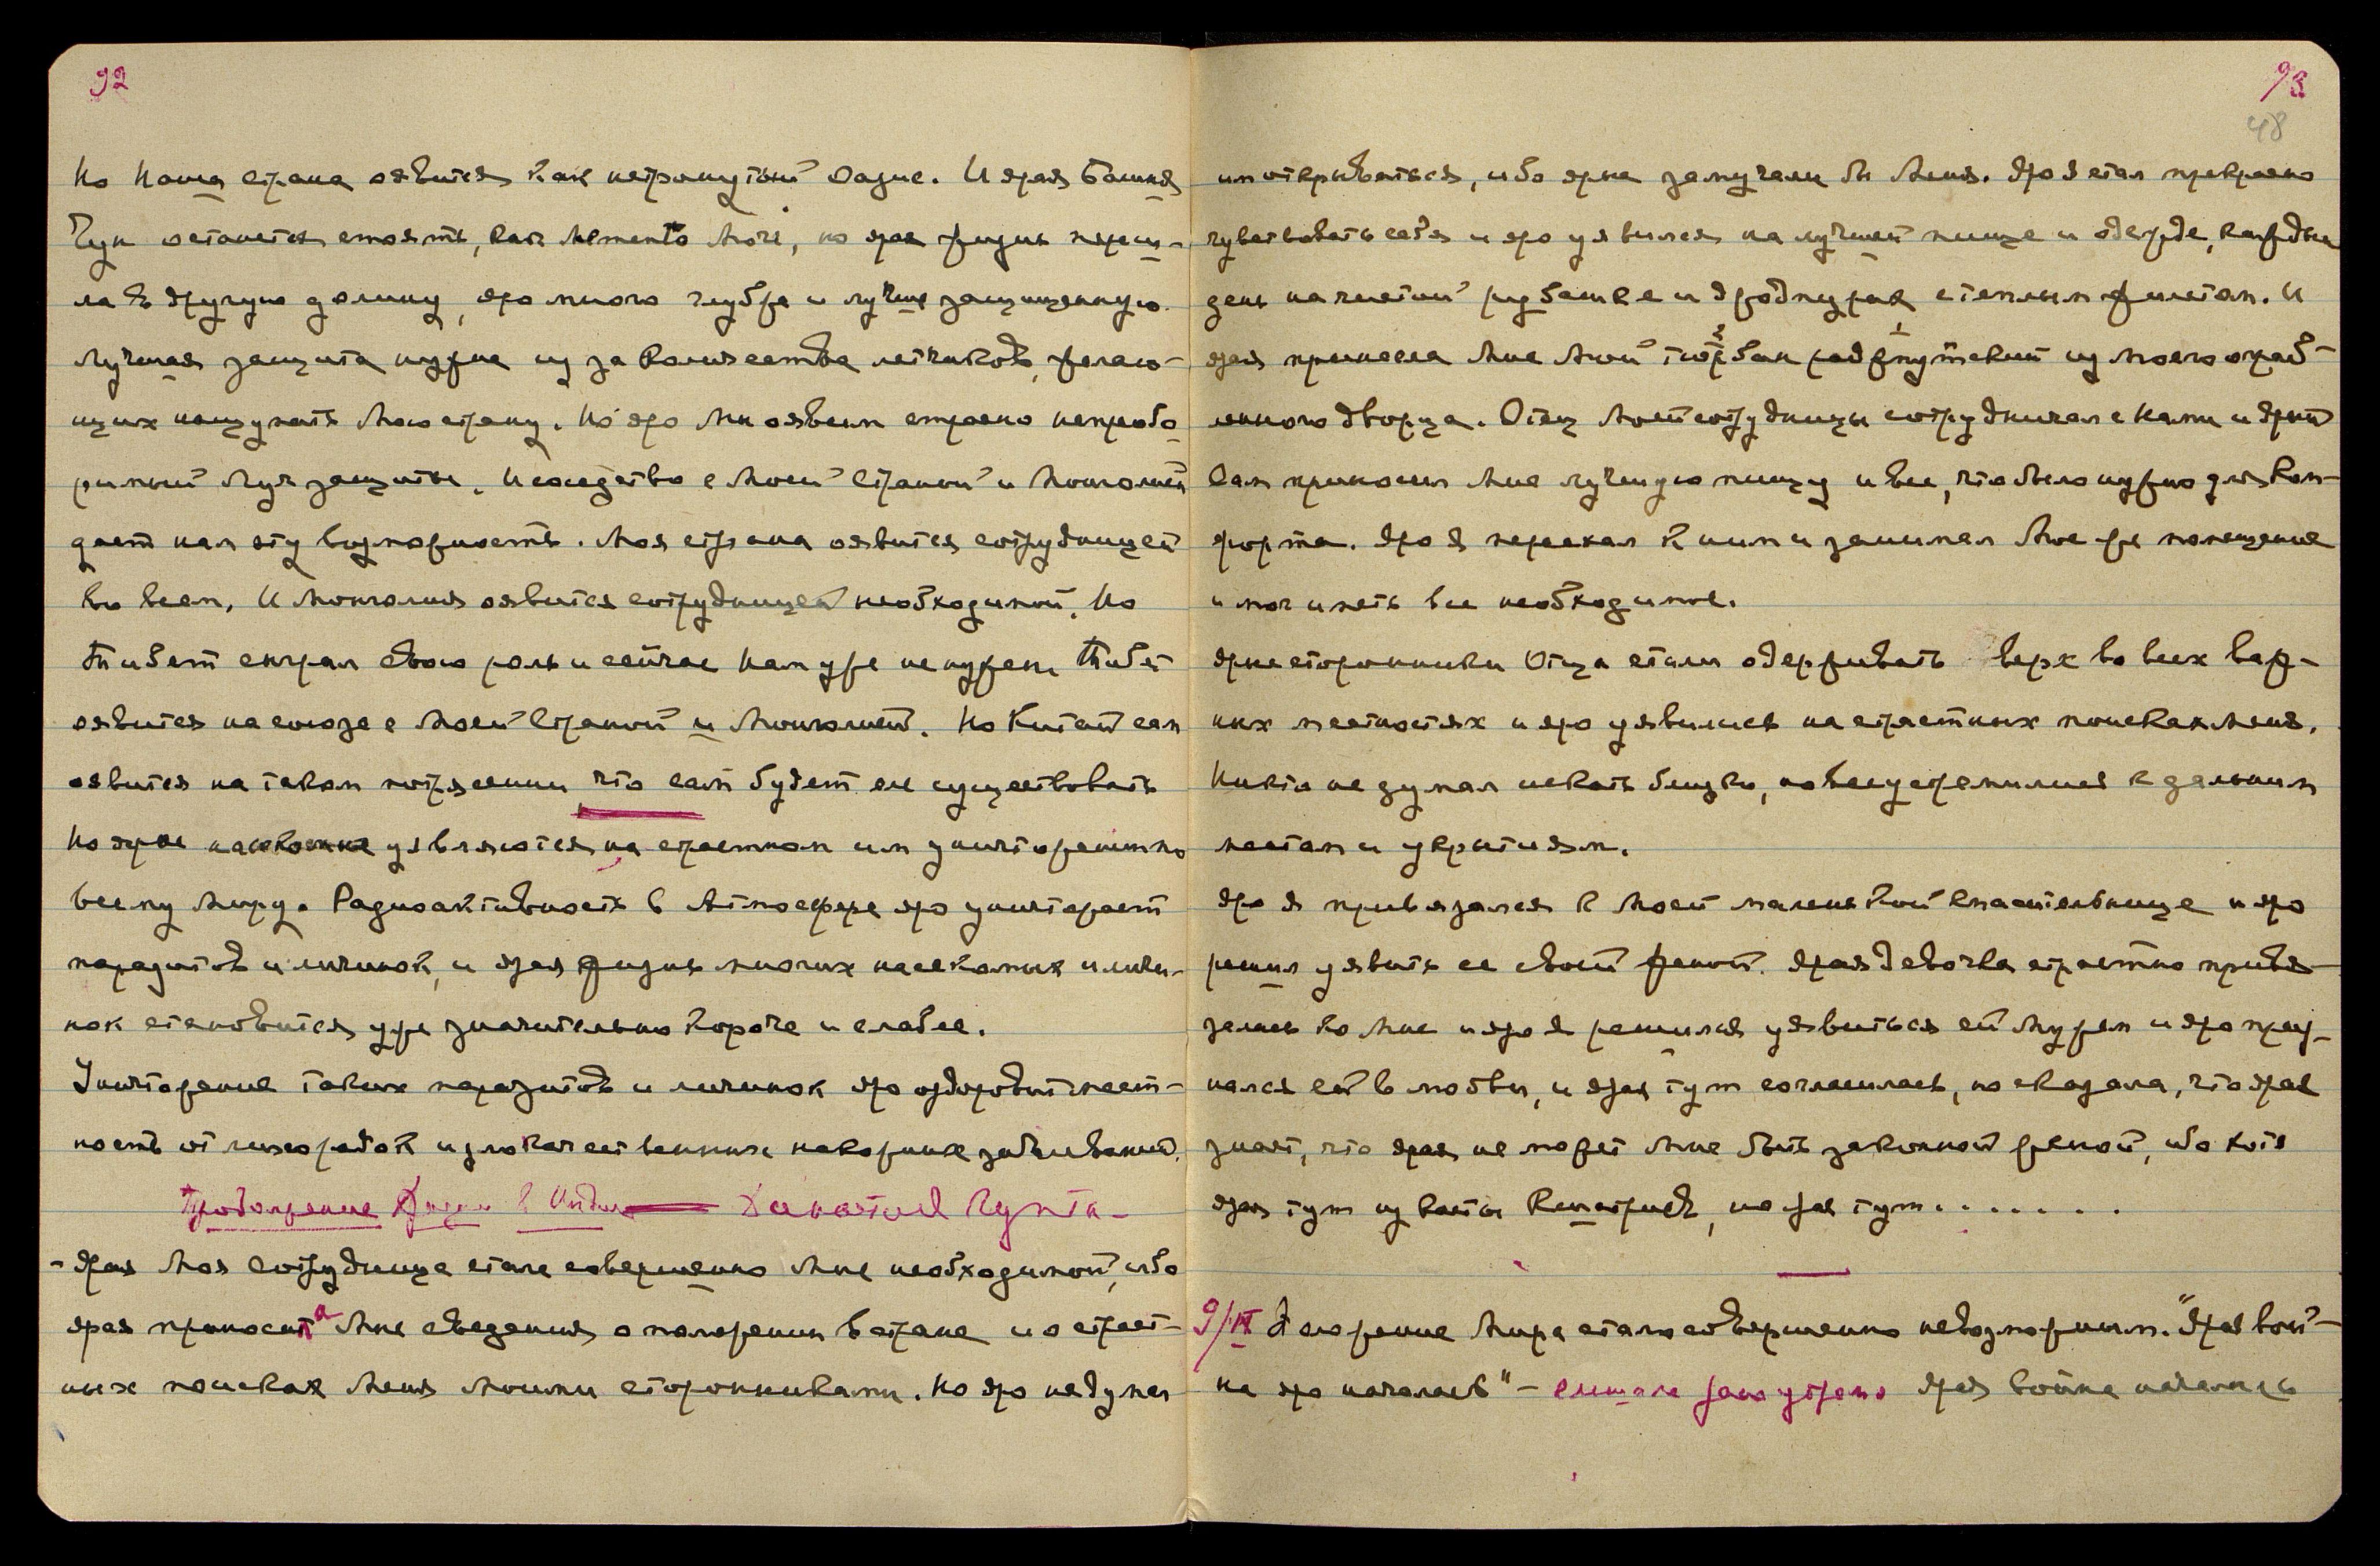 92
Но Наша страна оявится как нетронутый оазис. И ярая Башня
Чун останется стоять, как Memento Mori, но ярая жизнь переш-
ла в другую долину, яро много глубже и лучше защищенную.
Лучшая защита нужна из за количества летчиков, желаю-
щих нащупать Мою страну. Но яро Мы оявим страшно непробо-
римый Луч защиты. И соседство с Моей Страной и Монголией
дает нам эту возможность. Моя страна оявится сотрудницей
во всем. И Монголия оявится сотрудницей необходимой. Но
Тибет сыграл свою роль и сейчас Нам уже не нужен. Тибет
оявится на союзе с Моей Страной и Монголией. Но Китай сам
оявится на таком потрясении что сам будет еле существовать
Но ярые насекомые уявляются на страстном им уничтожении по
всему миру. Радиоактивность в Атмосфере яро уничтожает
паразитов и личинок, и ярая жизнь многих насекомых и личи-
нок становится уже значительно короче и слабее.
Уничтожение таких паразитов и личинок яро оздоровит мест-
ность от лихорадок и злокачественных накожных заболеваний.
Продолжение Жизни в Индии Чандрагупта
- Ярая Моя сотрудница стала совершенно Мне необходимой, ибо
ярая приносила Мне сведения о положении в стране и о страст-
ных поисках Меня Моими сторонниками. Но яро не думал
93
48
им открываться, ибо ярые замучали бы Меня. Яро Я стал прекрасно
чувствовать себя и яро уявился на лучшей пище и одежде, каждый
день на чистой рубашке и с теплым жилетом. И
ярая принесла Мне Мой тюрбан из Моего ограб-
ленного дворца. Отец Моей сотрудницы сотрудничал с Нами и ярый
сам приносил Мне лучшую пищу и все, что было нужно для ком-
форта. Яро Я переехал к ним и занимал Мое же помещение
и мог иметь все необходимое.
Ярые сторонники Отца стали одерживать верх во всех важ-
ных местностях и яро уявились на страстных поисках Меня.
Никто не думал искать близко, но все устремились к дальним
местам и укрытиям.
Яро Я привязался к Моей маленькой спасительнице и яро
решил уявить ее своей женой. Ярая девочка страстно привя-
залась ко Мне и яро Я решился уявиться ей Мужем и яро приз-
нался ей в любви, и ярая тут согласилась, но сказала, что ярая
знает, что ярая не может Мне быть законной женой, ибо хотя
ярая тут из касты Кшатриев, но яро тут . . . . . . .
9/IX Сложение Мира стало совершенно невозможным. "Ярая вой-
на яро началась" - слышала рано утром Ярая война началась